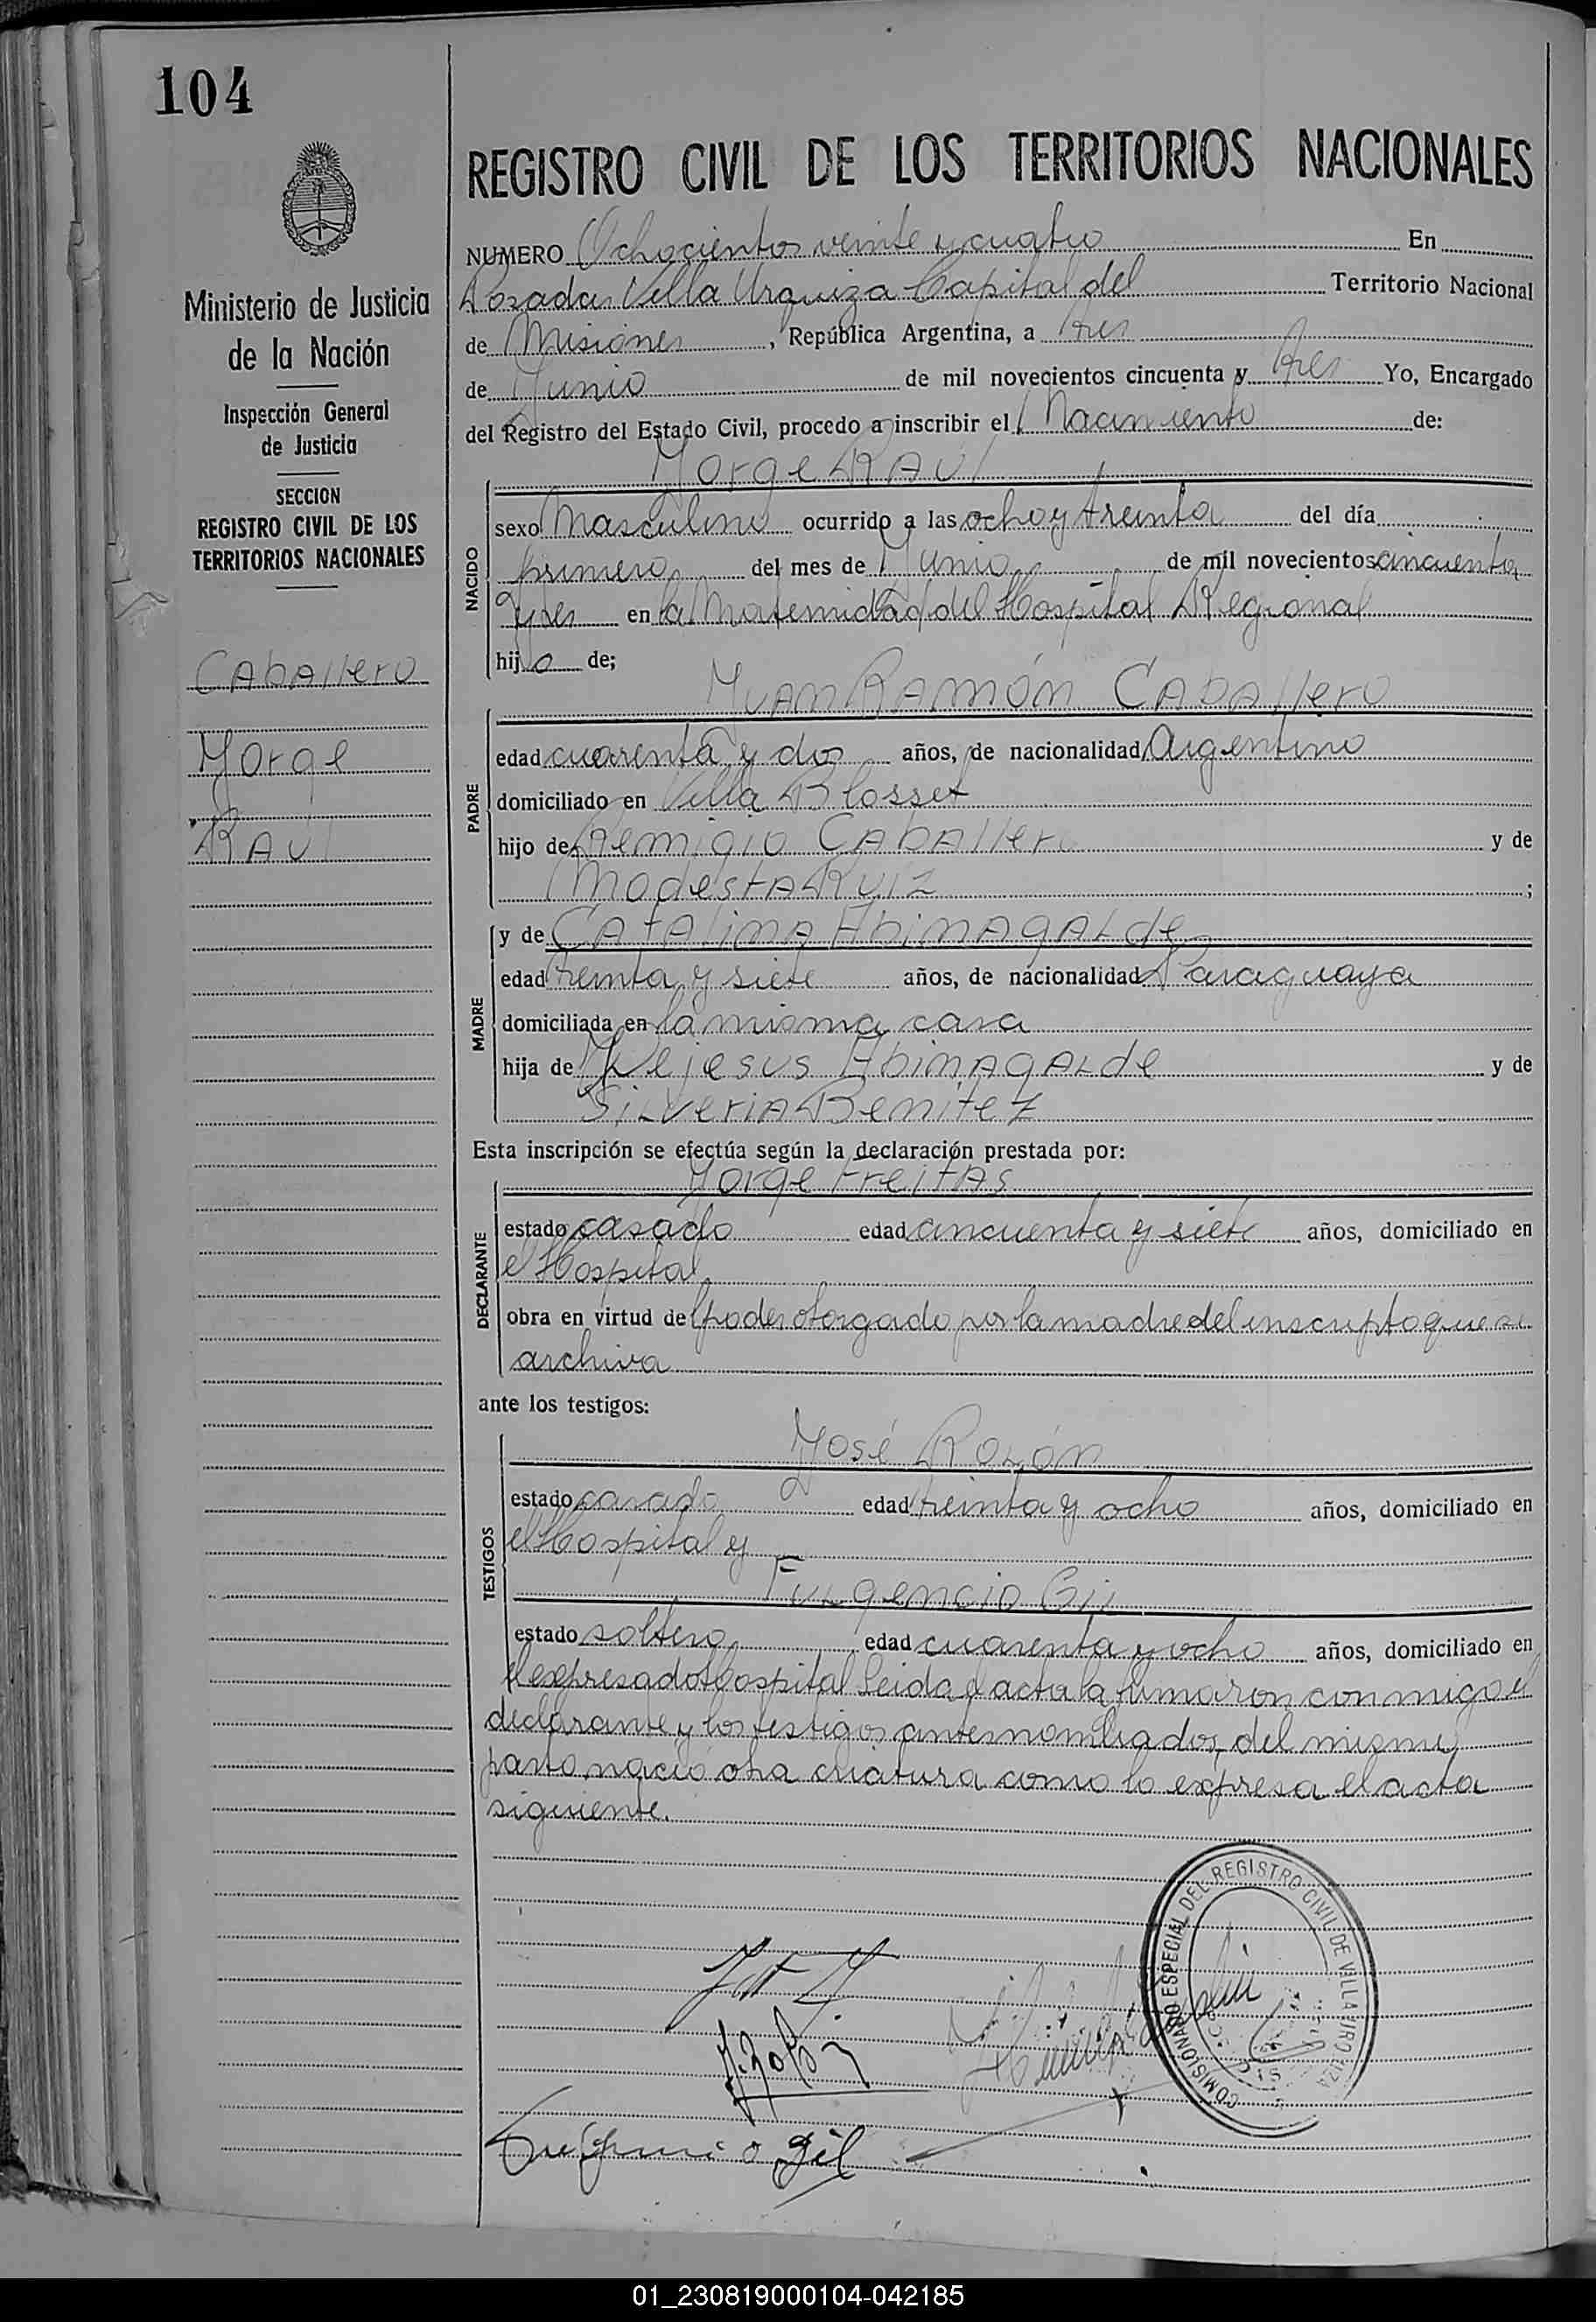 104
Ministerio de Justicia
de la Nación
Inspección General
de Justicia
SECCION
REGISTRO CIVIL DE LOS
TERRITORIOS NACIONALES
Caballero
Jorge
Raúl
REGISTRO CIVIL DE LOS TERRITORIOS NACIONALES
NUMERO Ochocientos veinte y cuatro En
Posadas Villa Urquiza Capital del Territorio Nacional
de Misiones, República Argentina, a tres
de Junio de mil novecientos cincuenta y tres Yo, Encargado
del Registro del Estado Civil, procedo a inscribir el Nacimiento de:
Jorge Raúl
NACIDO
sexo Masculino ocurrido a las ocho y treinta del día
primero del mes de Junio de mil novecientos cincuenta
y tres en la Maternidad del Hospital Regional
hijo de;
Juan Ramón Caballero
PADRE
edad cuarenta y dos años, de nacionalidad Argentino
domiciliado en Villa Blosset
hijo de Remigio Caballero y de
Modesta Ruiz ;
MADRE
y de Catalina Abinagalde
edad treinta y siete años, de nacionalidad Paraguaya
domiciliada en la misma casa
hija de Dejesus Abinagalde y de
Silveria Benitez
Esta inscripción se efectúa según la declaración prestada por:
Jorge Freitas
DECLARANTE
estado casado edad cincuenta y siete años, domiciliado en
el Hospital
obra en virtud del poder otorgado por la madre del inscripto que se
archiva
ante los testigos:
José Rolón
TESTIGOS
estado casado edad treinta y ocho años, domiciliado en
el Hospital y
Fulgencio Gil
estado soltero edad cuarenta y ocho años, domiciliado en
el expresado Hospital Leida el acta la firmaron conmigo el
declarante y los testigos antes nombrados, del mismo
parto nació otra criatura como lo expresa el acta
siguiente.
COMISIONADO ESPECIAL DEL REGISTRO CIVIL DE VILLA URQUIZA
Fulgencio Gil
01_230819000104-042185